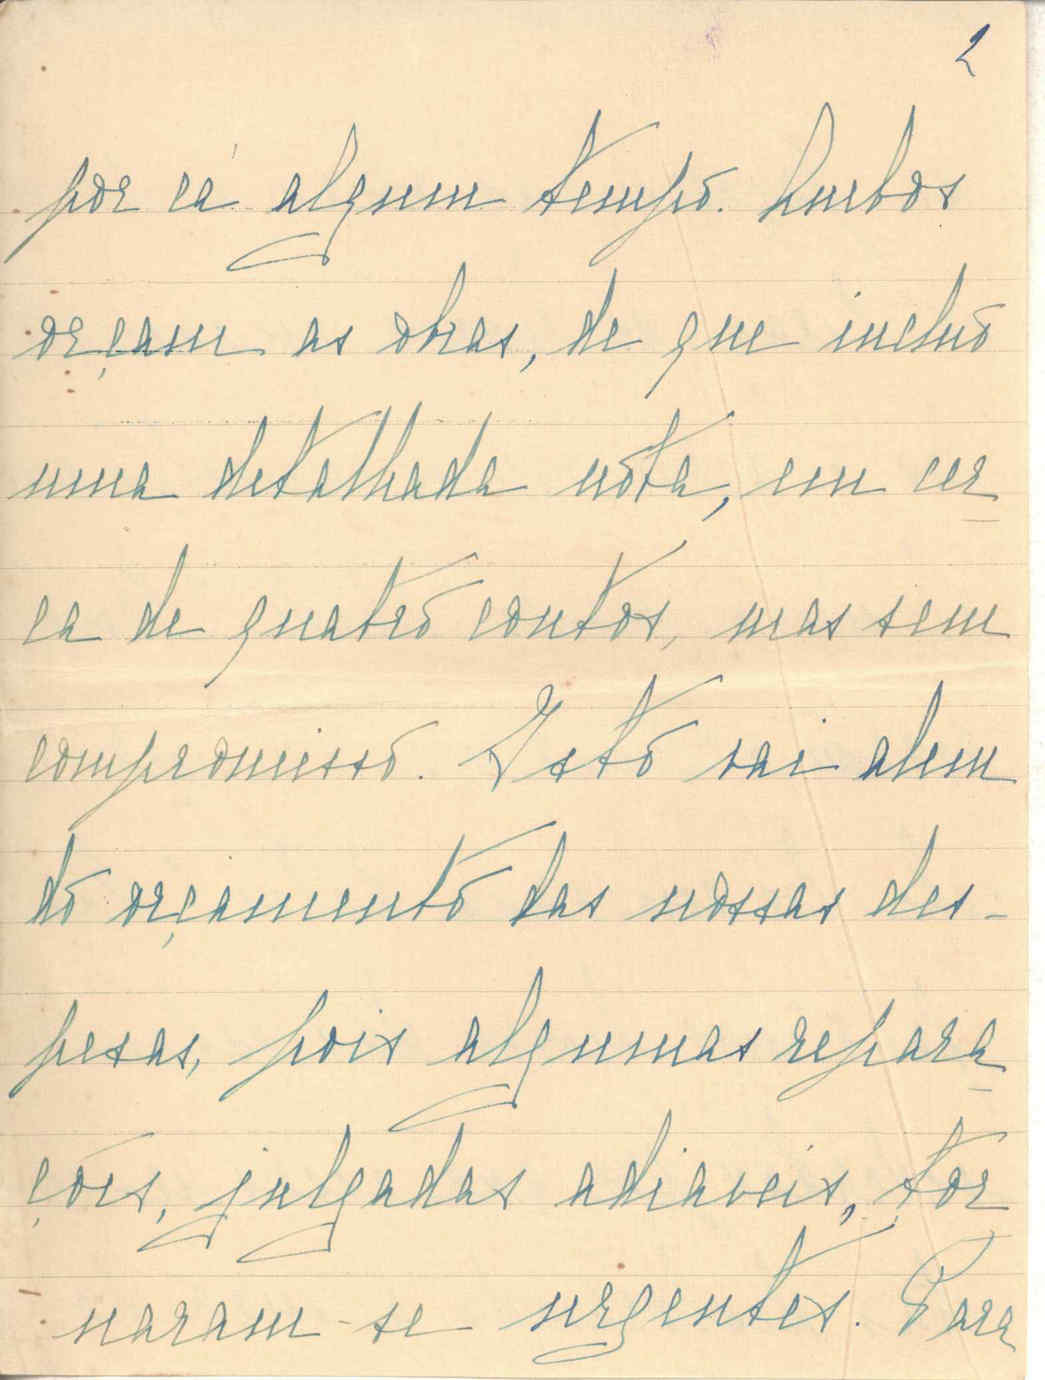 2
por cá algum tempo. Ambos
orçam as obras, de que incluo
uma detalhada nóta, em cer
ca de quatro contos, mas sem
compromisso. Isto vai alem
do orçamento das nossas des-
pesas, pois algumas repara
ções, julgadas adiaveis, tor
naram-se urgentes. Para